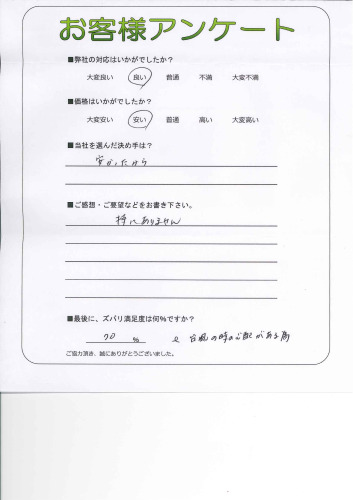 お客様アンケート
■弊社の対応はいかがでしたか？
大変良い 良い 普通 不満 大変不満
■価格はいかがでしたか？
大変安い 安い 普通 高い 大変高い
■当社を選んだ決め手は？
安かったから
■ご感想・ご要望などをお書き下さい。
特にありません
■最後に、ズバリ満足度は何％ですか？
70 % 台風の時の心配がある為
ご協力頂き、誠にありがとうございました。